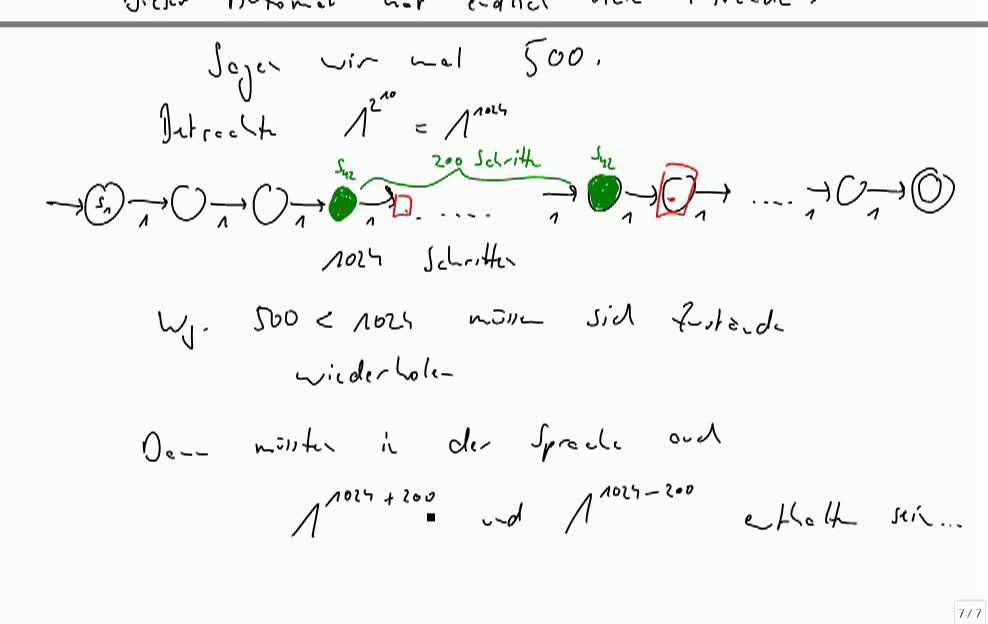 Dieser Automat hat endlich viele Zustände.
Sagen wir mal 500.
Betrachte 1^2^10 = 1^1024
S42 200 Schritte S42
S1 1 1 1 1 ..... 1 1 1 ..... 1 1
1024 Schritten
Wg. 500 < 1024 müssen sich Zustände
wiederholen
Dann müssten in der Sprache auch
1^1024+200 und 1^1024-200 enthalten sein...
7/7